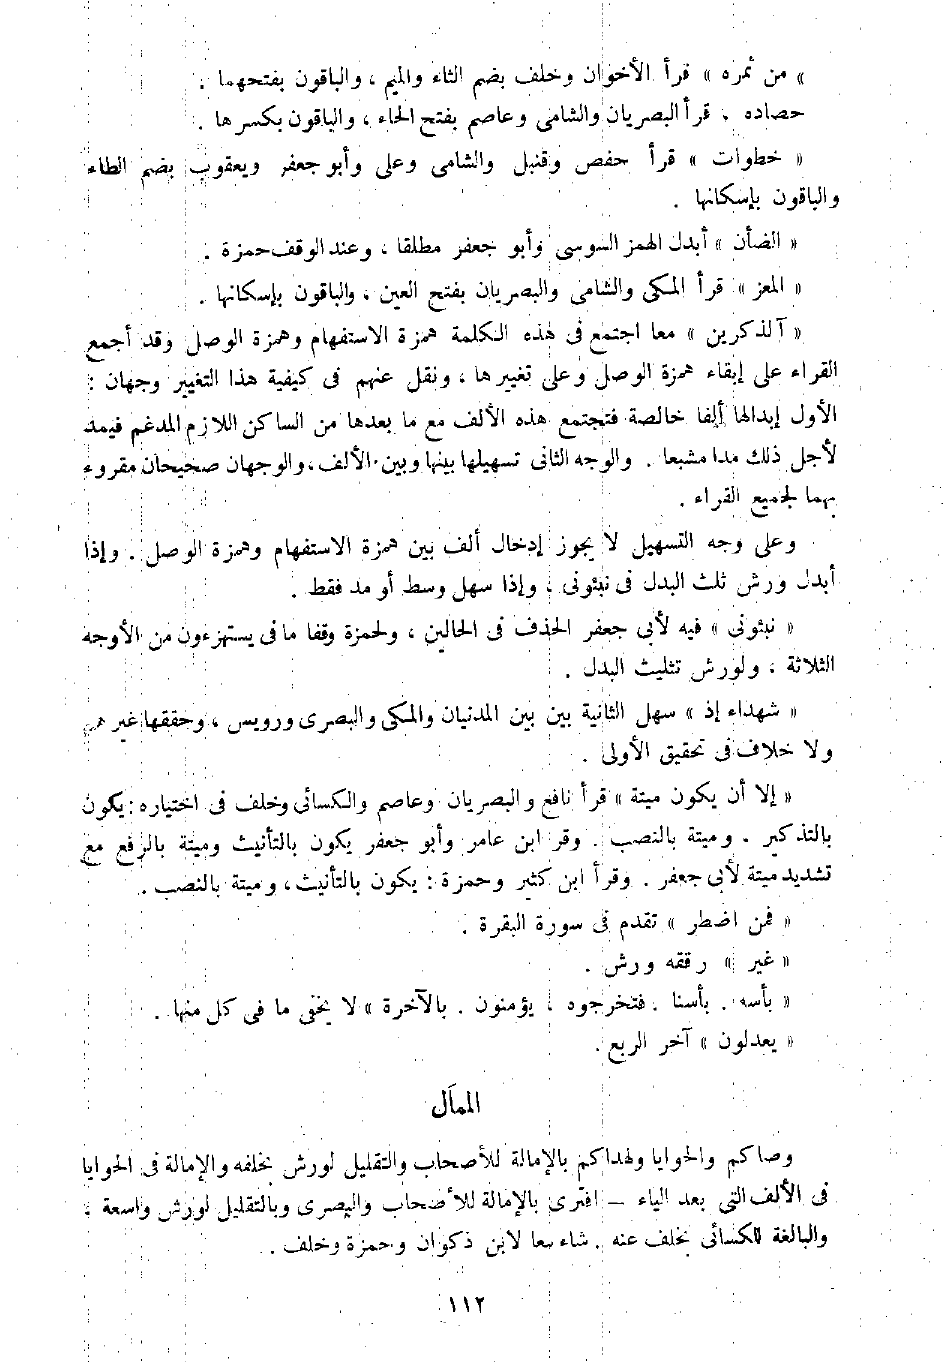 « من ثمره » قرأ الأخوان وخلف بضم الثاء والميم ، والباقون بفتحهما .
حصاده . قرأ البصريان والشامى وعاصم بفتح الحاء ، والباقون بكسرها .
« خطوات » قرأ حفص وقنبل والشامى وعلى وأبو جعفر ويعقوب بضم الطاء
والباقون بإسكانها .
« الضأن » أبدل الهمز السوسى وأبو جعفر مطلقا ، وعند الوقف حمزة .
« المعز » قرأ المكى والشامى والبصريان بفتح العين ، والباقون بإسكانها .
« آلذكرين » معا اجتمع فى هذه الكلمة همزة الاستفهام وهمزة الوصل وقد أجمع
القراء على إبقاء همزة الوصل وعلى تغييرها ، ونقل عنهم فى كيفية هذا التغيير وجهان :
الأول إبدالها ألفا خالصة فتجتمع هذه الألف مع ما بعدها من الساكن اللازم المدغم فيمد
لأجل ذلك مدا مشبعا . والوجه الثانى تسهيلها بينها وبين الألف ، والوجهان صحيحان مقروء
بهما لجميع القراء .
وعلى وجه التسهيل لا يجوز إدخال ألف بين همزة الاستفهام وهمزة الوصل . وإذا
أبدل ورش ثلث البدل فى نبئونى ، وإذا سهل وسط أو مد فقط .
« نبئونى » فيه لأبى جعفر الحذف فى الحالين ، ولحمزة وقفا ما فى يستهزءون من الأوجه
الثلاثة ، ولورش تثليث البدل .
« شهداء إذ » سهل الثانية بين بين المدنيان والمكى والبصرى ورويس ، وحققها غيرهم
ولا خلاف فى تحقيق الأولى .
« إلا أن يكون ميتة » قرأ نافع والبصريان وعاصم والكسائى وخلف فى اختياره : يكون
بالتذكير . وميتة بالنصب . وقر ابن عامر وأبو جعفر يكون بالتأنيث وميتة بالرفع مع
تشديد ميتة لأبى جعفر . وقرأ ابن كثير وحمزة : يكون بالتأنيث ، وميتة بالنصب .
« فمن اضطر » تقدم فى سورة البقرة .
« غير » رققه ورش .
« بأسه . بأسنا . فتخرجوه ، يؤمنون . بالآخرة » لا يخفى ما فى كل منها .
« يعدلون » آخر الربع .
الممال
وصاكم والحوايا ولهداكم بالإمالة للأصحاب والتقليل لورش بخلفه والإمالة فى الحوايا
فى الألف التى بعد الياء – افترى بالإمالة للأصحاب والبصرى وبالتقليل لورش واسعة ،
والبالغة للكسائى بخلف عنه . شاء معا لابن ذكوان وحمزة وخلف .
١١٢